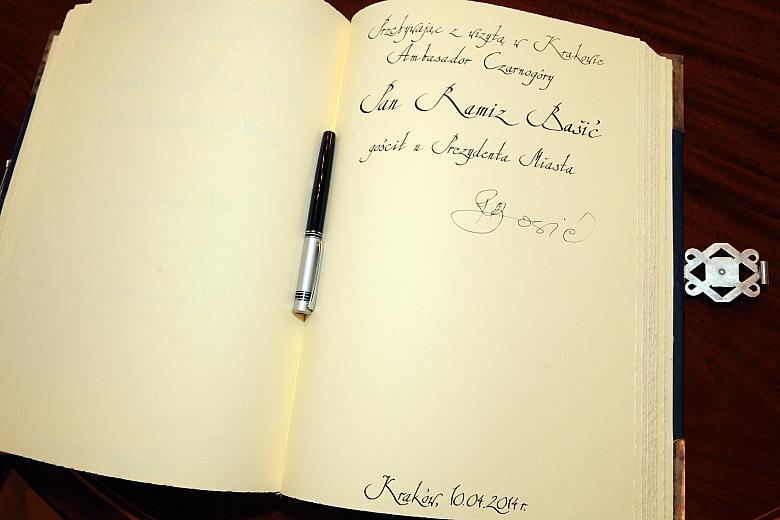 Przebywając z wizytą w Krakowie
Ambasador Czarnogóry
Pan Ramiz Bašić
gościł u Prezydenta Miasta
Kraków, 10.04.2014 r.